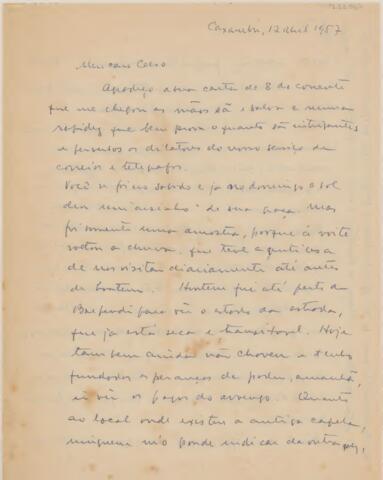 Caxambu, 12 abril 1957
Meu caro Celso
Agradeço a sua carta de 8 do corrente
que me chegou às mãos sã e salva e numa
rapidez que bem prova o quanto são
e os do nosso serviço de
correios e telegrafos.
Você se foi no sabado e já no domingo o sol
deu um de sua graça. Mas
foi somente uma amostra, porque à noite
voltou a chuva, que teve a gentileza
de nos visitar diariamente até antes
de hontem. Hontem fui até perto de
Baependi para ver o estado da estrada,
que já está seca e transitavel. Hoje
tambem ainda não choveu e tenho
fundadas esperanças de poder, amanhã,
ir ver os pagos do avoengo. Quanto
ao local onde existiu a antiga capela,
ninguem m'o ponde indicar da outra vez,